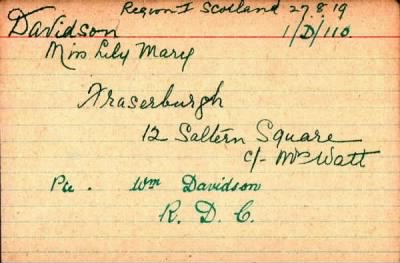 Region I Scotland 27.8.19
Davidson 1/D/110.
Miss Lily Mary
Fraserburgh
12 Saltern Square
c/- Mrs Watt
Pu. Wm Davidson
R. D. C.